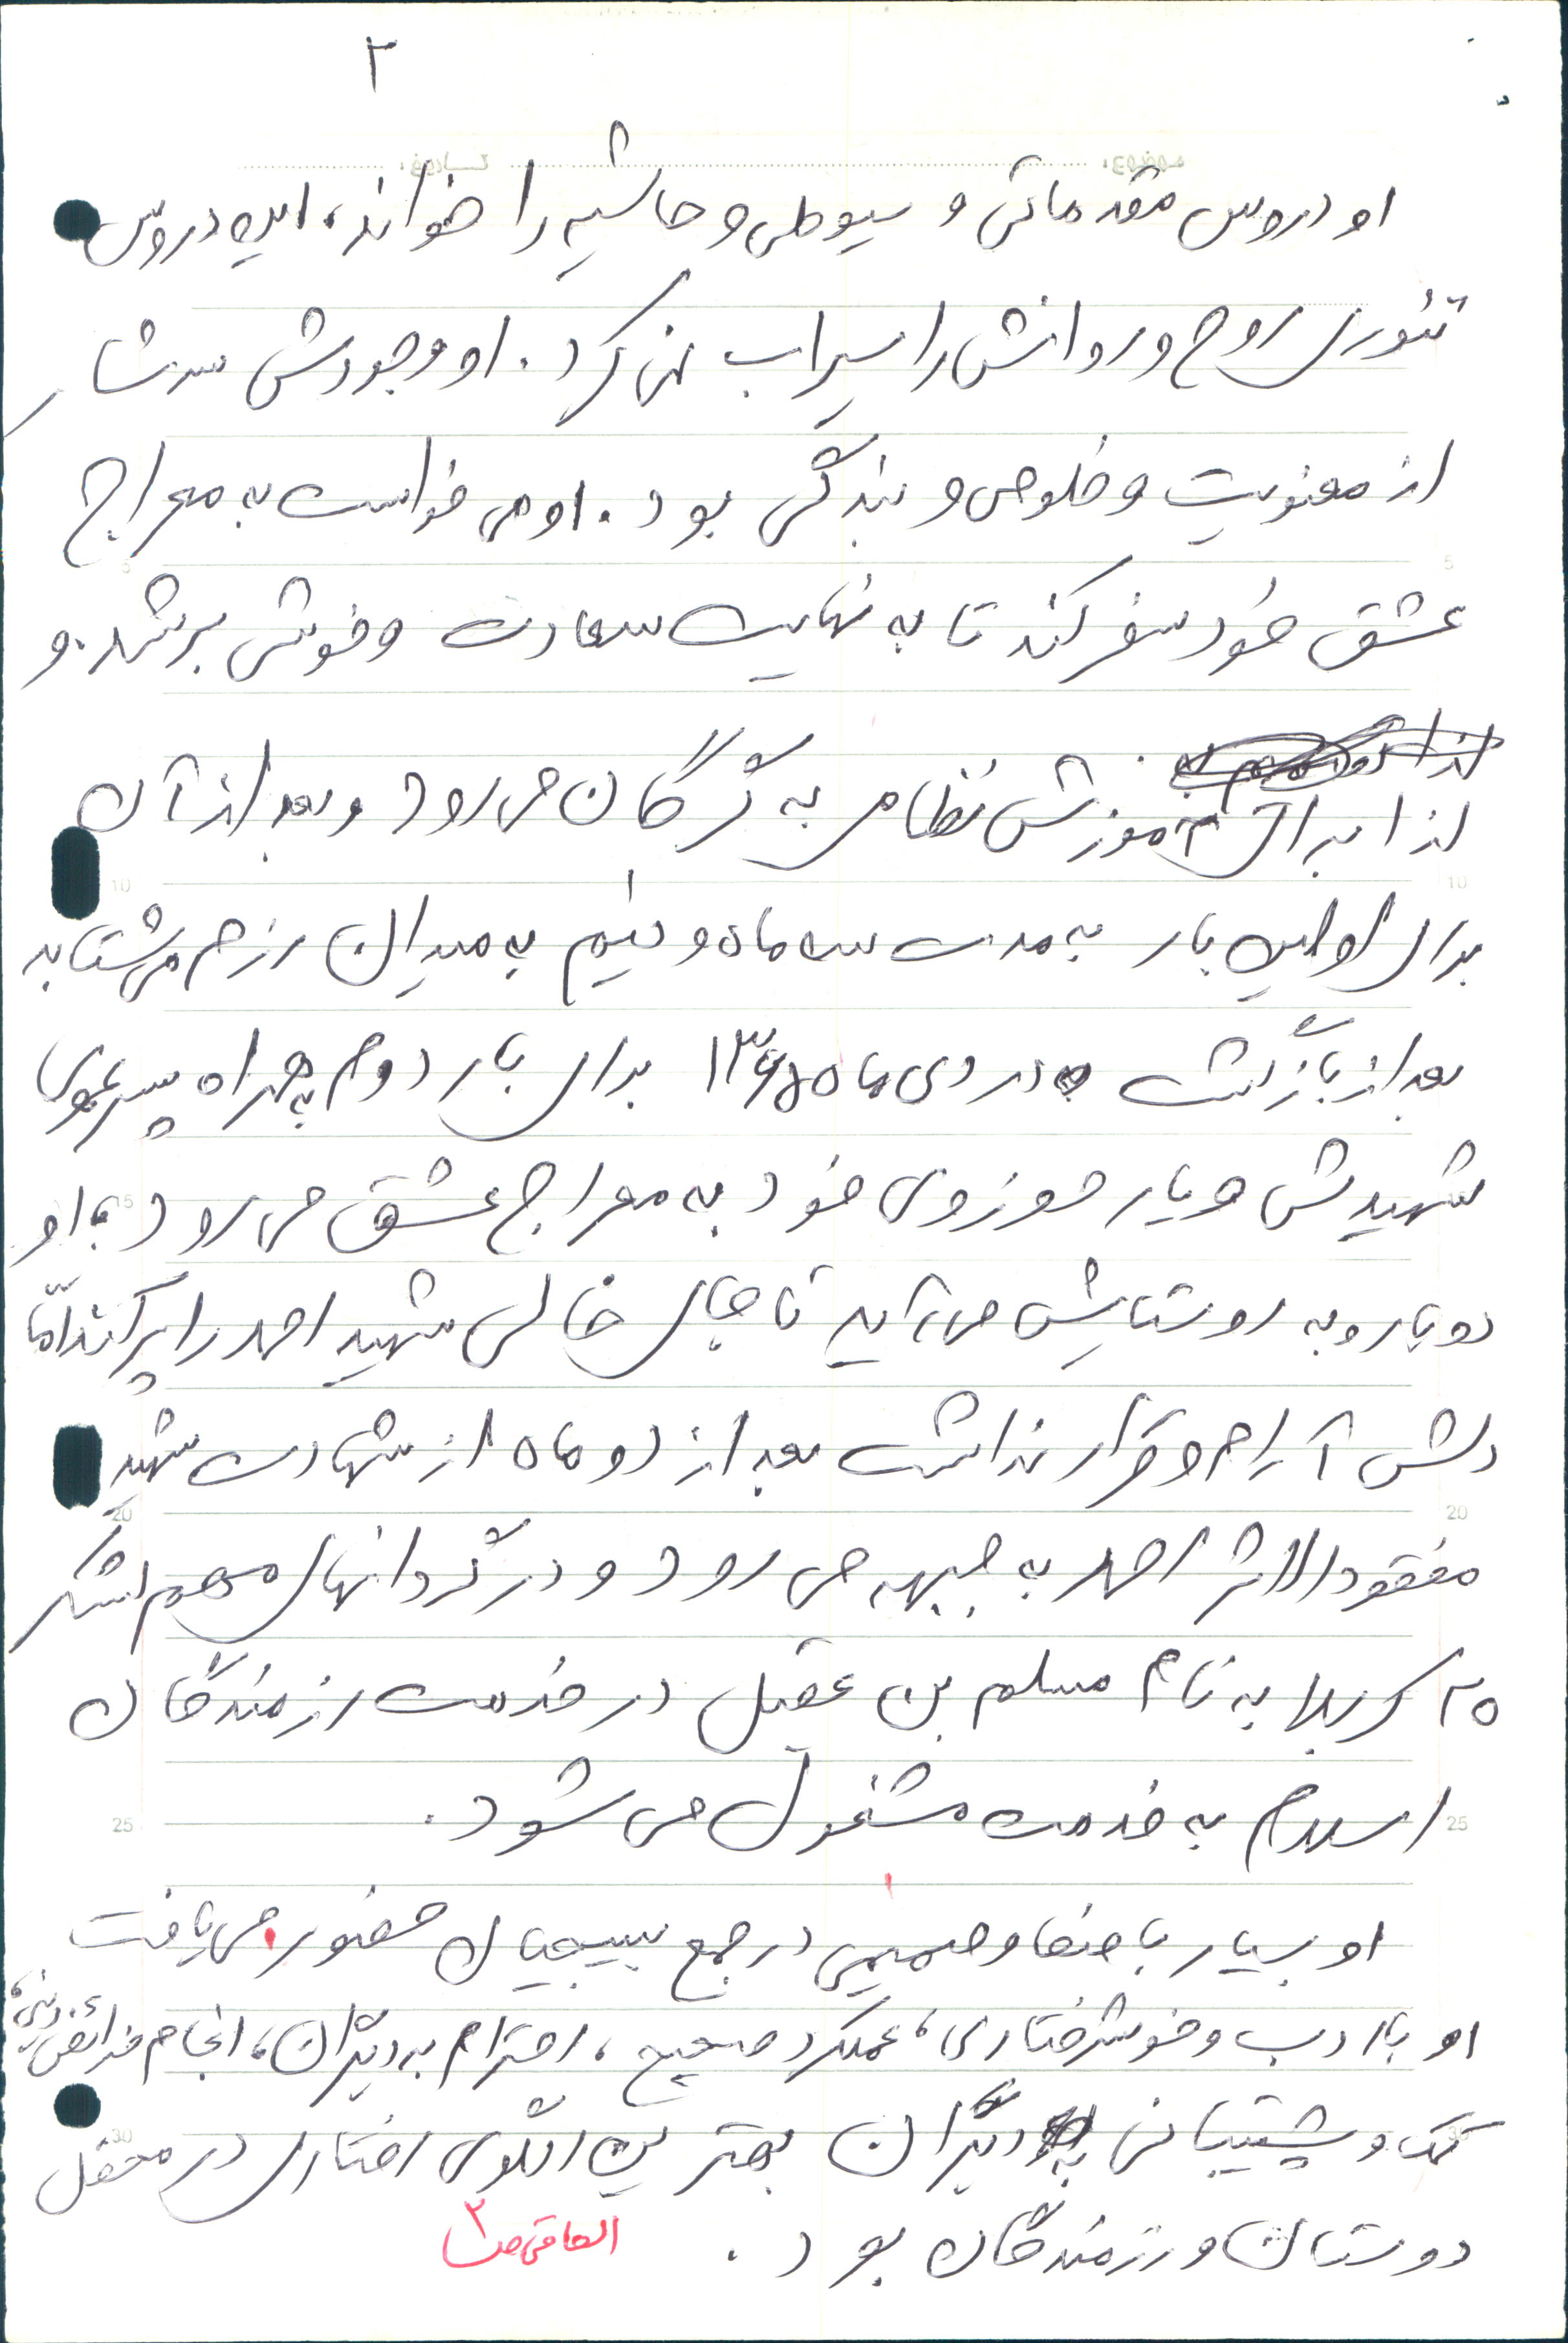 ۲
او دروس مقدماتی و سیوطی و حاشیه را خواند، این دروس
تئوری روح و روانش را سیراب نمی کرد. او وجودش سرشار
از معنویت و خلوص و بندگی بود. او می خواست به معراج
عشق خود سفر کند تا به نهایت سعادت و خوشی برسد. و
لذا برای آموزش نظامی به گرگان می رود و بعد از آن
برای اولین بار به مدت سه ماه و نیم به میدان رزم می شتابد
بعد از بازگشت در دی ماه ۱۳۶۵ برای بار دوم به همراه پسر عموی
شهیدش و یار حوزوی خود به معراج عشق می رود، او
دوباره به روستایش می آید تا جای خالی شهید احمد را پر کند امّا
دلش آرام و قرار نداشت بعد از دو ماه از شهادت شهید
مفقودالاثر احمد به جبهه می رود و در گردانهای مهم لشکر
۲۵ کربلا به نام مسلم بن عقیل در خدمت رزمندگان
اسلام به خدمت مشغول می شود.
او بسیار با صفا و صمیمی در جمع بسیجیان حضور می یافت
او با ادب و خوشرفتاری، عملکرد صحیح، احترام به دیگران، انجام فرائض دینی،
کمک و پشتیبانی به دیگران بهترین الگوی رفتاری در محفل
دوستان و رزمندگان بود.